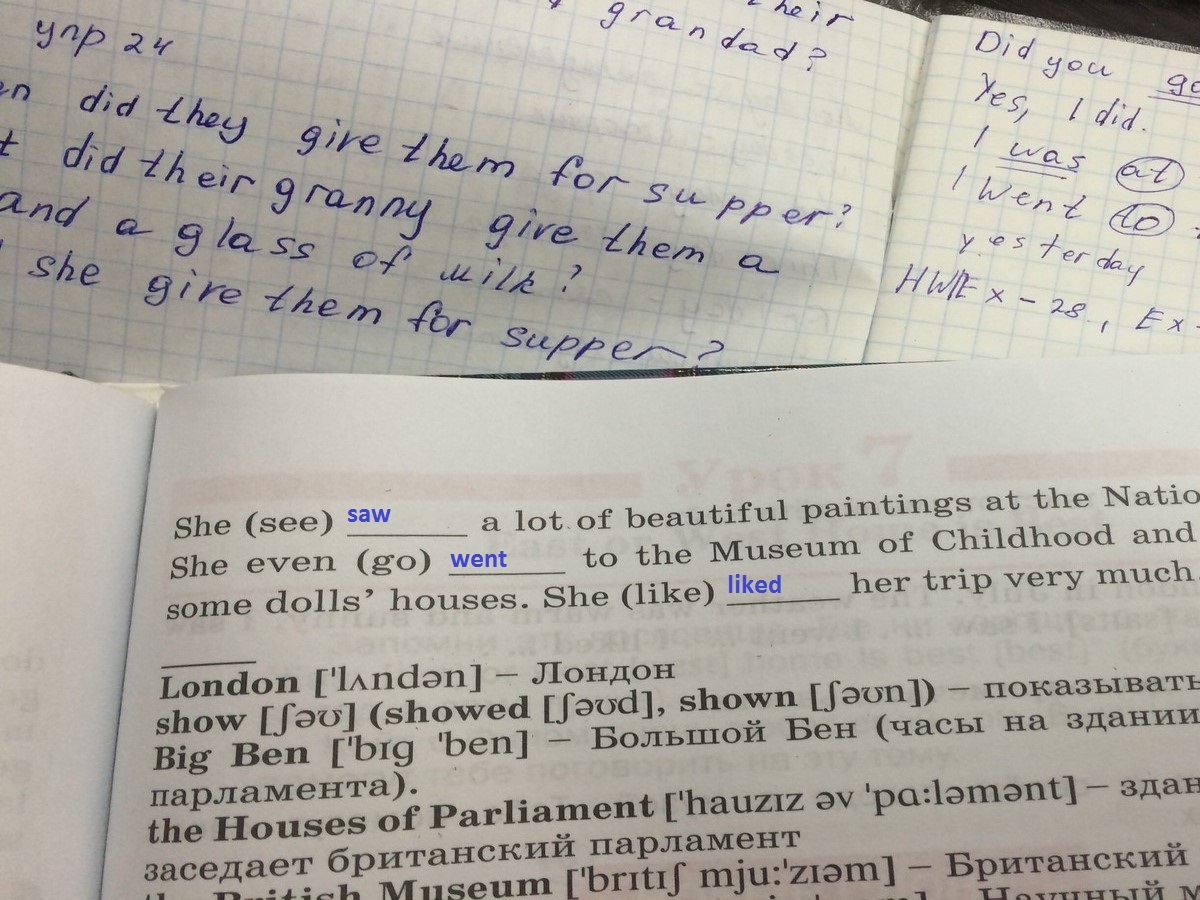 упр 24
their
grandad?
did they give them for supper?
did their granny give them a
and a glass of milk?
she give them for supper?
Did you go
Yes, I did.
I was at
I went to
yesterday
HW Ex - 28, Ex
Урок 7
She (see) saw a lot of beautiful paintings at the Natio
She even (go) went to the Museum of Childhood and
some dolls’ houses. She (like) liked her trip very much.
London ['lʌndən] – Лондон
show [ʃəʊ] (showed [ʃəʊd], shown [ʃəʊn]) – показывать
Big Ben ['bɪg 'ben] – Большой Бен (часы на здании
парламента).
the Houses of Parliament ['hauzɪz əv 'pɑ:ləmənt] – здан
заседает британский парламент
British Museum ['brɪtɪʃ mju:'zɪəm] – Британский
Научный м